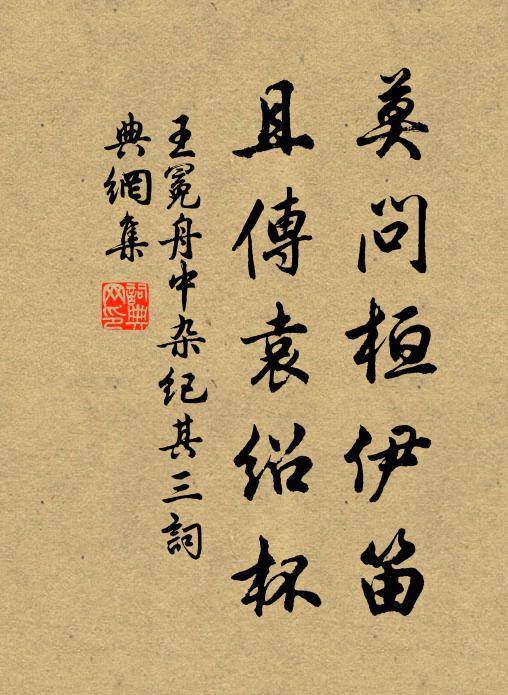 莫问桓伊笛
且傳袁紹杯
王冕舟中杂纪其三詞
典網集
詞典网印